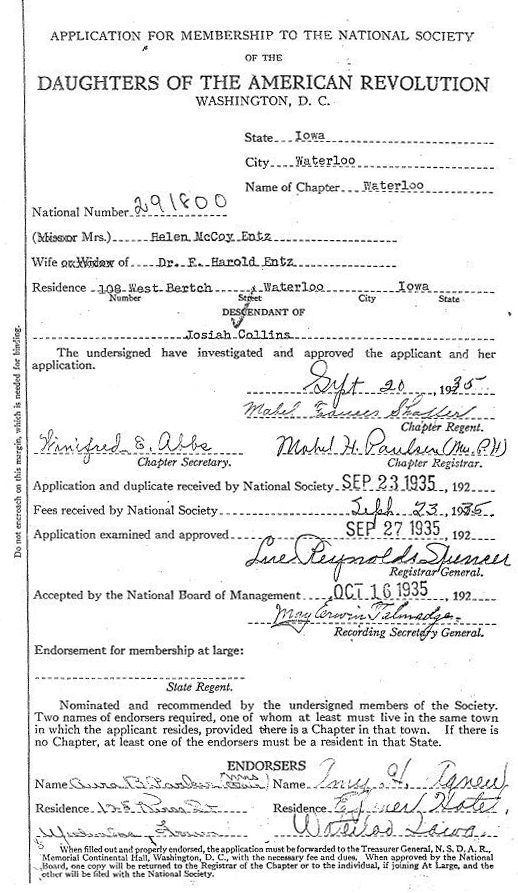 APPLICATION FOR MEMBERSHIP TO THE NATIONAL SOCIETY
OF THE
DAUGHTERS OF THE AMERICAN REVOLUTION
WASHINGTON, D. C.
State Iowa
City Waterloo
Name of Chapter Waterloo
National Number 291800
(Miss or Mrs.) Helen McCoy Entz
Wife or Widow of Dr. F. Harold Entz
Residence 108 West Bertch, Waterloo Iowa
Number Street City State
DESCENDANT OF
Josiah Collins
The undersigned have investigated and approved the applicant and her
application.
Sept 20, 1935
Mabel Frances Shaffer
Chapter Regent.
Winifred E. Abbs Mabel H. Paulsen (Mrs. P.H)
Chapter Secretary. Chapter Registrar.
Application and duplicate received by National Society SEP 23 1935, 192
Fees received by National Society Sept 23, 1935
Application examined and approved SEP 27 1935, 192
Lue Reynolds Spencer
Registrar General.
Accepted by the National Board of Management OCT 16 1935, 192
May Erwin Talmadge.
Recording Secretary General.
Endorsement for membership at large:
State Regent.
Nominated and recommended by the undersigned members of the Society.
Two names of endorsers required, one of whom at least must live in the same town
in which the applicant resides, provided there is a Chapter in that town. If there is
no Chapter, at least one of the endorsers must be a resident in that State.
ENDORSERS
Name B Parker Name Amy H. Agnew
Residence Residence Hotel
Waterloo Iowa Waterloo Iowa
When filled out and properly endorsed, the application must be forwarded to the Treasurer General, N. S. D. A. R.,
Memorial Continental Hall, Washington, D. C., with the necessary fee and dues. When approved by the National
Board, one copy will be returned to the Registrar of the Chapter or to the individual, if joining At Large, and the
other will be filed with the National Society.
Do not encroach on this margin, which is needed for binding.